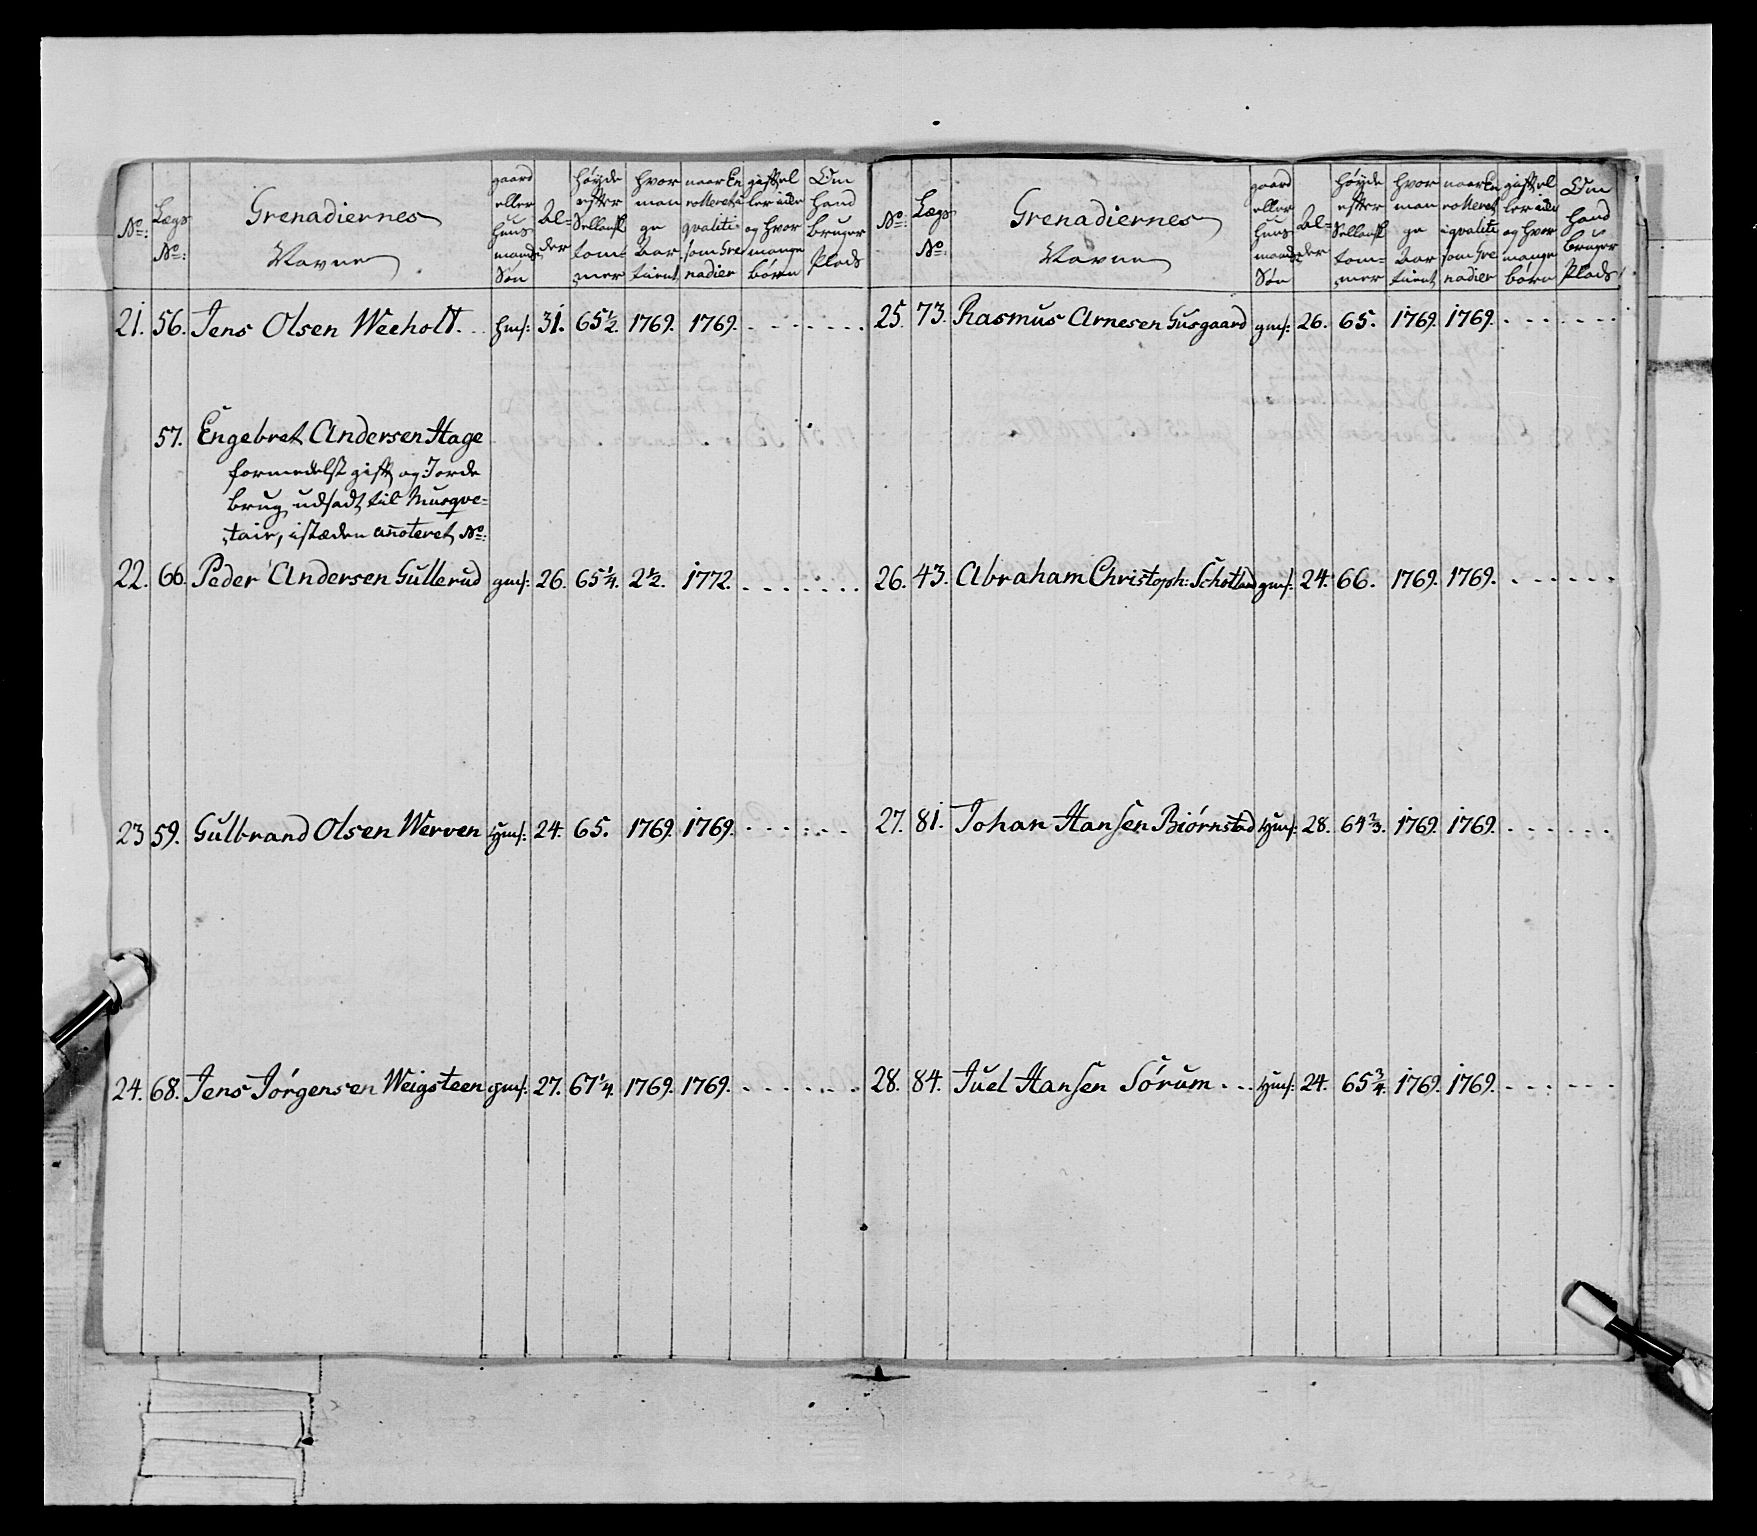 No:
Lægs No:
Grenadiernes Navne
gaard eller huus mands Søn
Al- der
høyde efter Sellansk tom- mer
hvor man ge Aar tient
naar En rolleret i qvalite som Gre nadier
gift el ler ickke og hvor mange børn
Om hand bruger Plads
21. 56. Jens Olsen Weeholt. hmſ: 31. 65½ 1769. 1769.
57. Engebret Andersen Hage
formedelst gift og Jorde
brug udsadt til Musqve-
tair, isteden añoteret No:
22. 66. Peder Andersen Gullerud gmſ: 26. 65¼. 2½. 1772.
23 59. Gulbrand Olsen Werven Hmſ: 24. 65. 1769. 1769.
24. 68. Jens Jörgensen Weigsteen gmſ: 27. 67¼. 1769. 1769.
No:
Lægs No:
Grenadiernes Navne
gaard eller huus mands Søn
Al- der
høyde efter Sellansk tom- mer
hvor man ge Aar tient
naar En rolleret i qvalite som Gre nadier
gift el ler ickke og hvor mange børn
Om hand bruger Plads
25. 73. Rasmus Arnesen Gusgaard gmſ: 26. 65. 1769. 1769.
26. 43. Abraham Christoph: gmſ: 24. 66. 1769. 1769.
27. 81. Johan Hanſen Biørnstad Hmſ: 28. 64⅔. 1769. 1769.
28. 84. Juel Hanſen Sørum Hmſ: 24. 65¾. 1769. 1769.